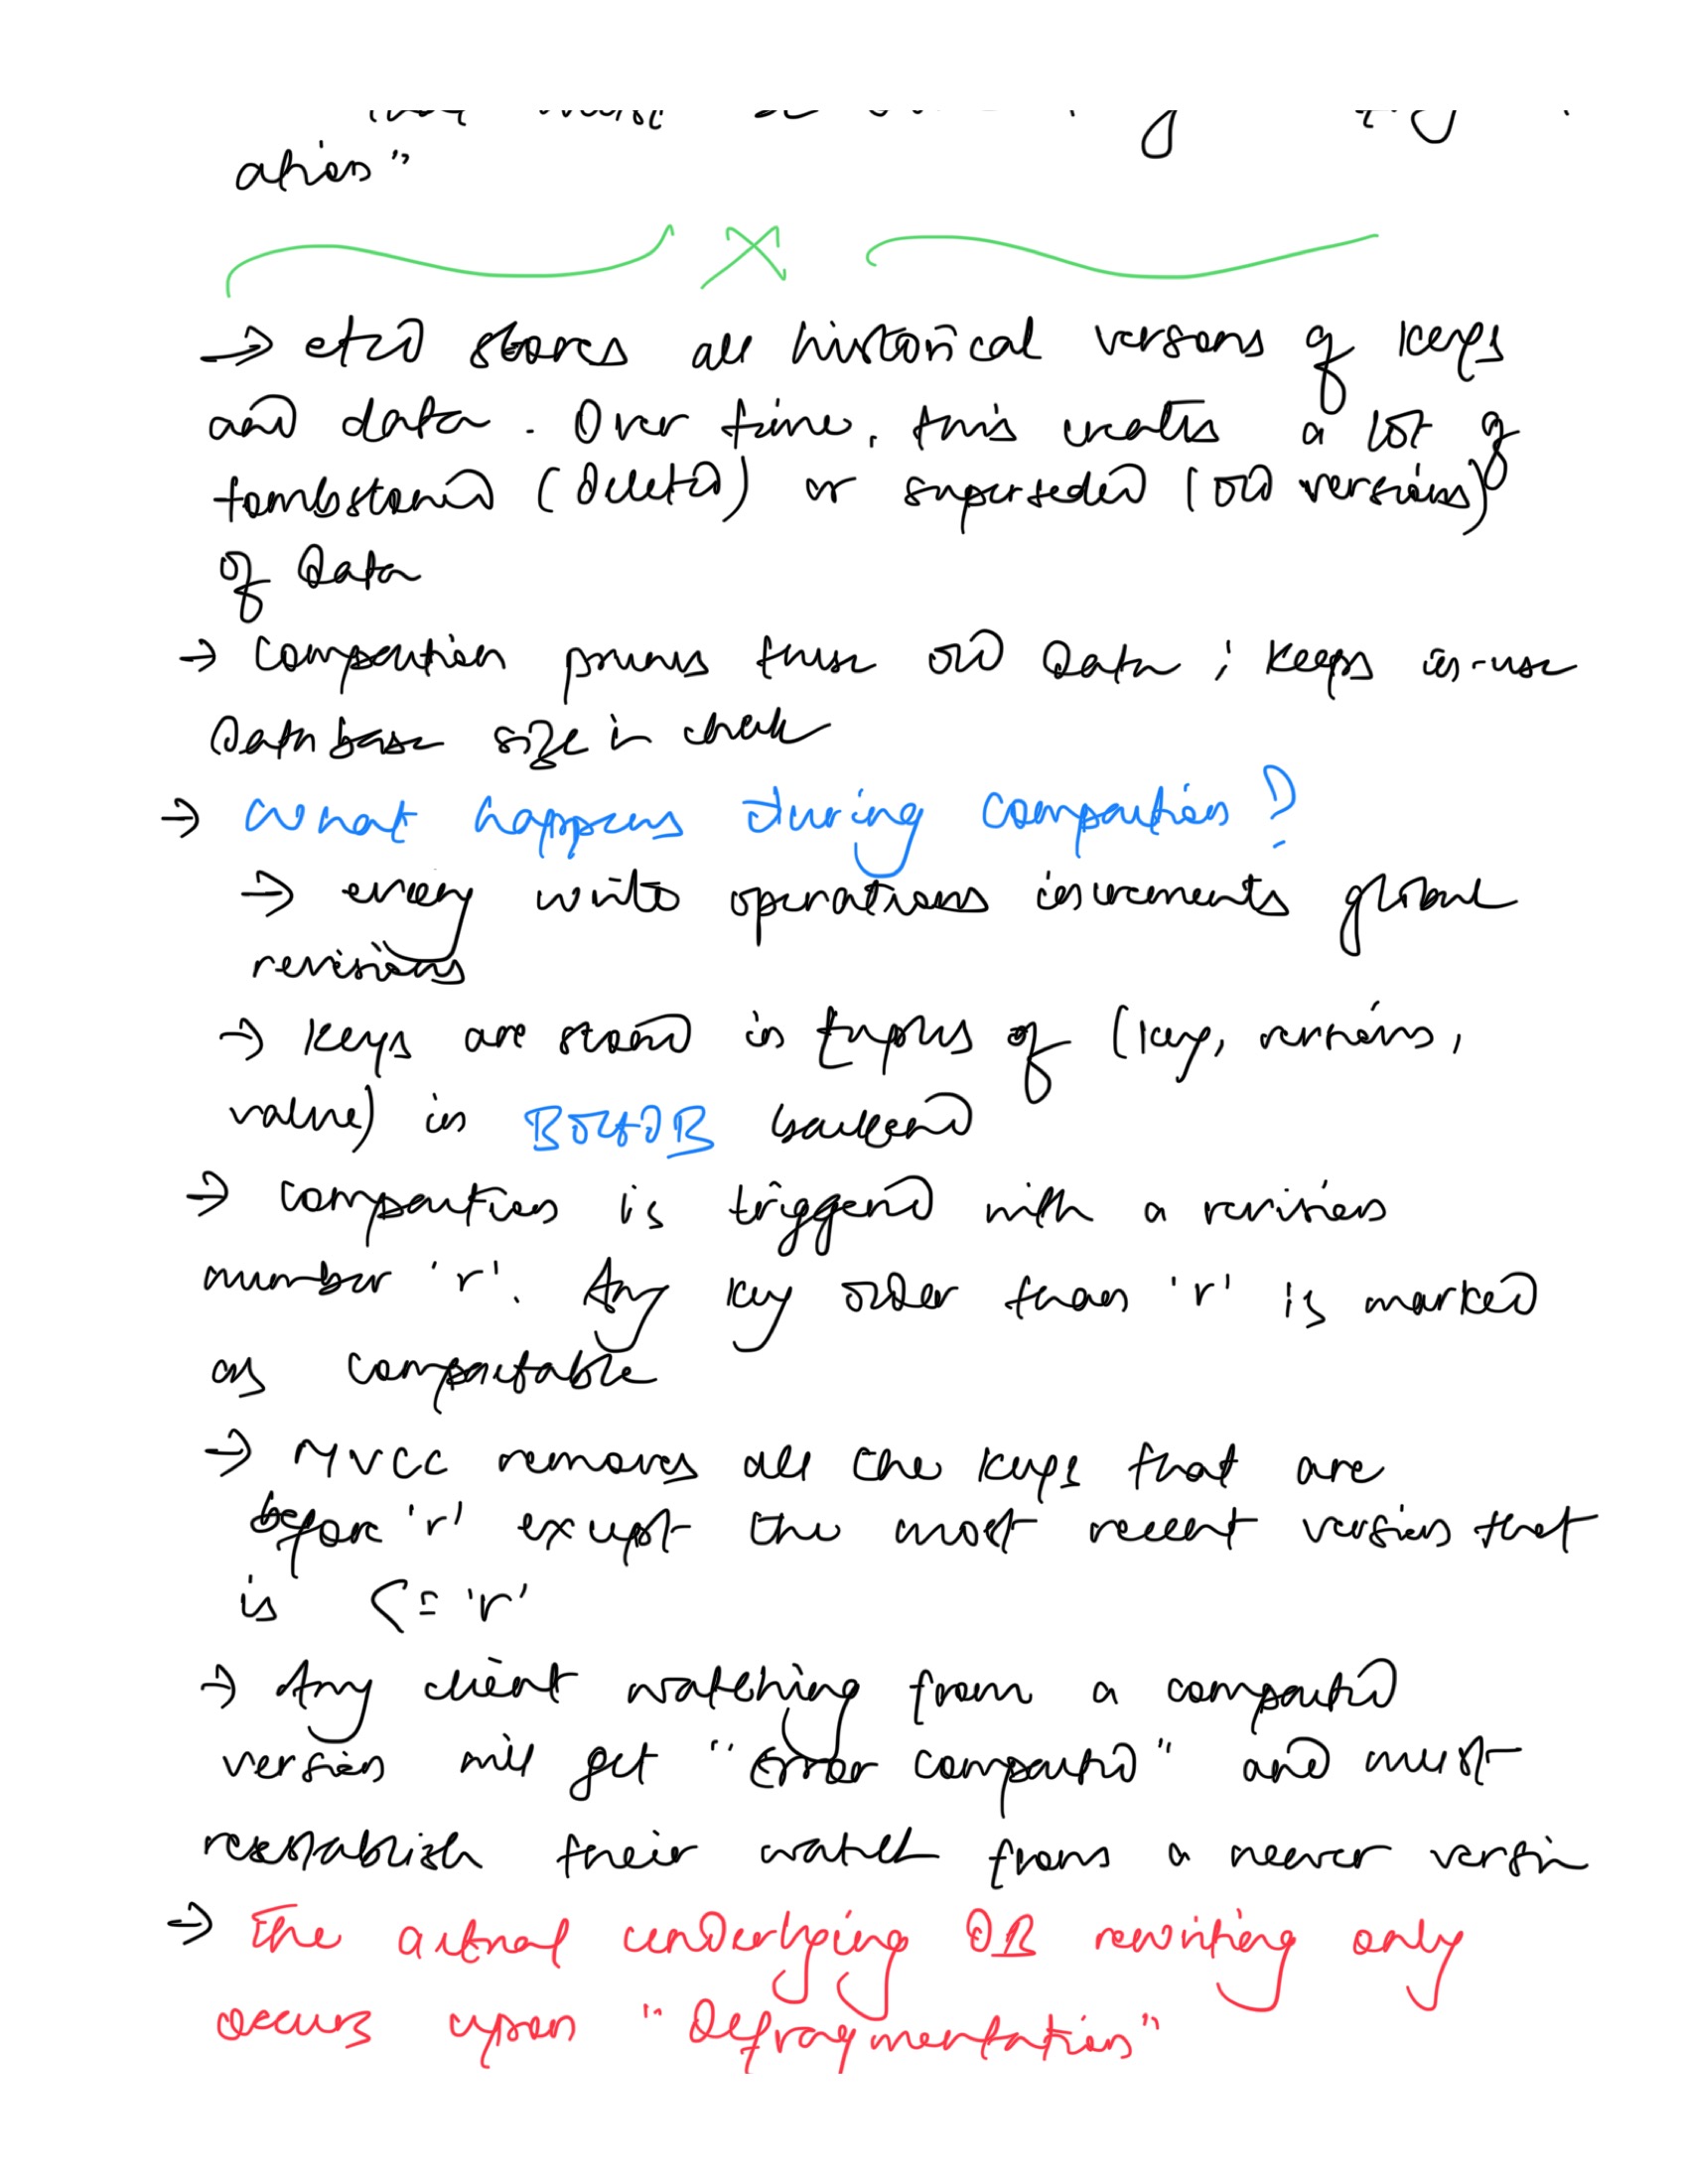 ation"
→ etcd stores all historical versions of keys
and data. Over time, this creates a lot of
tombstoned (deleted) or superseded (old versions)
of data
→ Compaction prunes these old data ; keeps in-use
database size in check
→ What happens during compaction?
→ every write operations increments global
revisions
→ keys are stored in tuples of (key, revision,
value) in BoltDB backend
→ compaction is triggered with a revision
number 'r'. Any key older than 'r' is marked
as compactable
→ MVCC removes all the keys that are
before 'r' except the most recent version that
is <= 'r'
→ Any client watching from a compacted
version will get "Error compacted" and must
reestablish their watch from a newer version
→ The actual underlying DB rewriting only
occurs upon "Defragmentation"